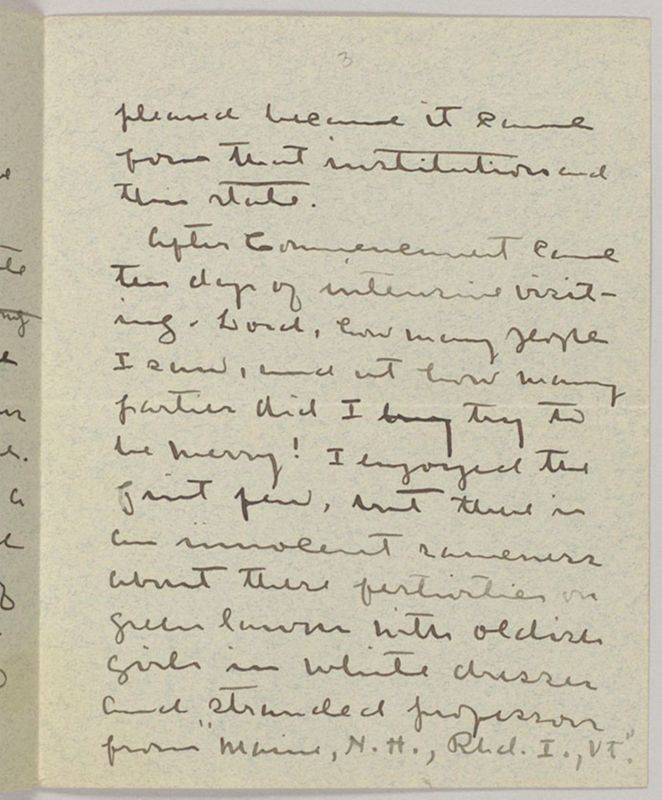 3
pleased because it came
from that institution and
this state.
After Commencement came
ten days of intensive visit-
ing. Lord, how many people
I saw, and at how many
parties did I try to
be merry! I enjoyed the
first few, but there is
an innocent sameness
about these festivities on
green lawns with oldish
girls in white dresses
and stranded professors
from "Maine, N. H., Rhd. I., VT".